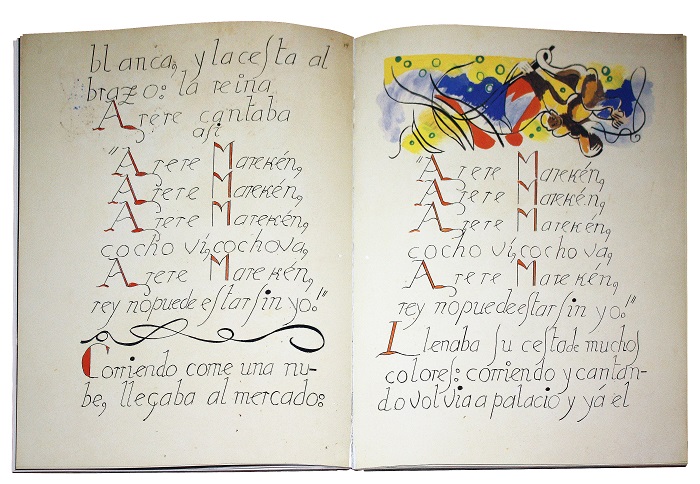 blanca, y la cesta al
brazo: la reina
Arere cantaba
así
"Arere Marekén,
Arere Marekén,
Arere Marekén,
cocho ví, cochova,
Arere Marekén,
rey no puede estar sin yo!"
Corriendo come una nu-
be, llegaba al mercado:
Arere Marekén,
Arere Marekén,
Arere Marekén,
cocho ví, cochova,
Arere Marekén,
rey no puede estar sin yo!"
Llenaba su cesta de muchos
colores: corriendo y cantan-
do volvia a palacio y ya el